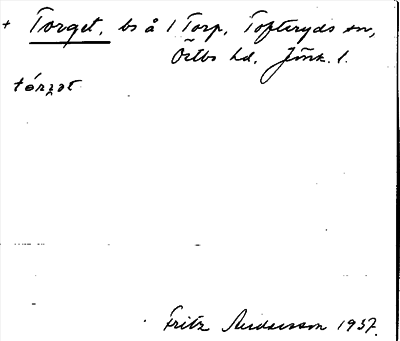 + Torget, bs å 1 Torp, Tofteryds sn,
Östbo hd, Jönk. l.
tórzət
Fritz Andersson 1937.